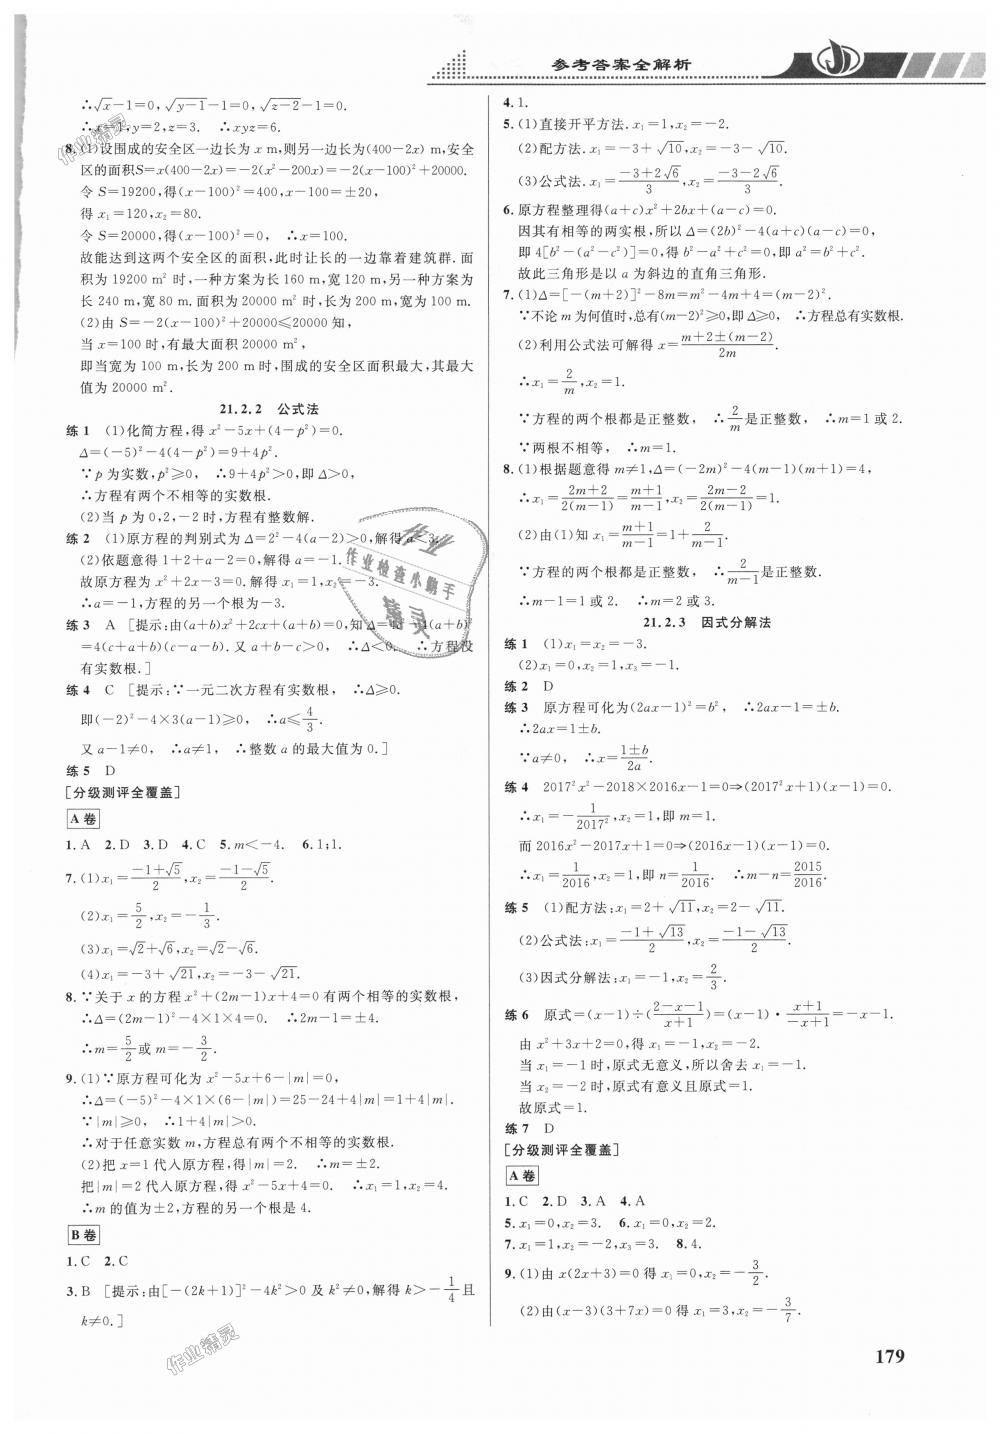 参考答案全解析
∴√x-1=0,√(y-1)-1=0,√(z-2)-1=0.
∴x=1,y=2,z=3. ∴xyz=6.
8.(1)设围成的安全区一边长为 x m,则另一边长为(400-2x) m,安全
区的面积S=x(400-2x)=-2(x²-200x)=-2(x-100)²+20000.
令 S=19200,得(x-100)²=400,x-100=±20,
得 x₁=120,x₂=80.
令 S=20000,得(x-100)²=0, ∴x=100.
故能达到这两个安全区的面积,此时让长的一边靠着建筑群. 面
积为 19200 m² 时,一种方案为长 160 m,宽 120 m,另一种方案为
长 240 m,宽 80 m. 面积为 20000 m² 时,长为 200 m,宽为 100 m.
(2)由 S=-2(x-100)²+20000≤20000 知,
当 x=100 时,有最大面积 20000 m²,
即当宽为 100 m,长为 200 m 时,围成的安全区面积最大,其最大
值为 20000 m².
21.2.2 公式法
练 1 (1)化简方程,得 x²-5x+(4-p²)=0.
Δ=(-5)²-4(4-p²)=9+4p².
∵p 为实数,p²≥0, ∴9+4p²>0,即 Δ>0,
∴方程有两个不相等的实数根.
(2)当 p 为 0,2,-2 时,方程有整数解.
练 2 (1)原方程的判别式为 Δ=2²-4(a-2)>0,解得 a<3.
(2)依题意得 1+2+a-2=0,解得 a=-1.
故原方程为 x²+2x-3=0.解得 x₁=1,x₂=-3.
∴a=-1,方程的另一个根为-3.
练 3 A [提示:由(a+b)x²+2cx+(a+b)=0,知 Δ=4c²-4(a+b)²
=4(c+a+b)(c-a-b).又 a+b-c>0, ∴Δ<0. ∴方程没
有实数根.]
练 4 C [提示:∵一元二次方程有实数根, ∴Δ≥0.
即(-2)²-4×3(a-1)≥0, ∴a≤4/3.
又 a-1≠0, ∴a≠1, ∴整数 a 的最大值为 0.]
练 5 D
[分级测评全覆盖]
A 卷
1. A 2. D 3. D 4. C 5. m<-4. 6. 1;1.
7.(1)x₁=(-1+√5)/2,x₂=(-1-√5)/2.
(2)x₁=5/2,x₂=-1/3.
(3)x₁=√2+√6,x₂=√2-√6.
(4)x₁=-3+√21,x₂=-3-√21.
8. ∵关于 x 的方程 x²+(2m-1)x+4=0 有两个相等的实数根,
∴Δ=(2m-1)²-4×1×4=0. ∴2m-1=±4.
∴m=5/2或 m=-3/2.
9.(1)∵原方程可化为 x²-5x+6-|m|=0,
∴Δ=(-5)²-4×1×(6-|m|)=25-24+4|m|=1+4|m|.
∵|m|≥0, ∴1+4|m|>0.
∴对于任意实数 m,方程总有两个不相等的实数根.
(2)把 x=1 代入原方程,得|m|=2. ∴m=±2.
把|m|=2 代入原方程,得 x²-5x+4=0. ∴x₁=1,x₂=4.
∴m 的值为±2,方程的另一个根是 4.
B 卷
1. C 2. C
3. B [提示:由[-(2k+1)]²-4k²>0 及 k²≠0,解得 k>-1/4且
k≠0.]
4. 1.
5.(1)直接开平方法. x₁=1,x₂=-2.
(2)配方法. x₁=-3+√10,x₂=-3-√10.
(3)公式法. x₁=(-3+2√6)/3,x₂=(-3-2√6)/3.
6. 原方程整理得(a+c)x²+2bx+(a-c)=0.
因其有相等的两实根,所以 Δ=(2b)²-4(a+c)(a-c)=0,
即 4[b²-(a²-c²)]=0,得 b²-a²+c²=0,即 a²=b²+c².
故此三角形是以 a 为斜边的直角三角形.
7.(1)Δ=[-(m+2)]²-8m=m²-4m+4=(m-2)².
∵不论 m 为何值时,总有(m-2)²≥0,即 Δ≥0, ∴方程总有实数根.
(2)利用公式法可解得 x=(m+2±(m-2))/2m.
∴x₁=2/m,x₂=1.
∵方程的两个根都是正整数, ∴2/m是正整数, ∴m=1 或 2.
∵两根不相等, ∴m=1.
8.(1)根据题意得 m≠1,Δ=(-2m)²-4(m-1)(m+1)=4,
∴x₁=(2m+2)/2(m-1)=(m+1)/(m-1),x₂=(2m-2)/2(m-1)=1.
(2)由(1)知 x₁=(m+1)/(m-1)=1+2/(m-1).
∵方程的两个根都是正整数, ∴2/(m-1)是正整数.
∴m-1=1 或 2. ∴m=2 或 3.
21.2.3 因式分解法
练 1 (1)x₁=x₂=-3.
(2)x₁=0,x₂=1,x₃=-1.
练 2 D
练 3 原方程可化为(2ax-1)²=b², ∴2ax-1=±b.
∴2ax=1±b.
∵a≠0, ∴x=(1±b)/2a.
练 4 2017²x²-2018×2016x-1=0⇒(2017²x+1)(x-1)=0.
∴x₁=-1/2017²,x₂=1,即 m=1.
而 2016x²-2017x+1=0⇒(2016x-1)(x-1)=0.
∴x₁=1/2016,x₂=1,即 n=1/2016. ∴m-n=2015/2016.
练 5 (1)配方法:x₁=2+√11,x₂=2-√11.
(2)公式法:x₁=(-1+√13)/2,x₂=(-1-√13)/2.
(3)因式分解法:x₁=-1,x₂=2/3.
练 6 原式=(x-1)÷((2-x-1)/(x+1))=(x-1)·(x+1)/(-x+1)=-x-1.
由 x²+3x+2=0,得 x₁=-1,x₂=-2.
当 x₁=-1 时,原式无意义,所以舍去 x₁=-1.
当 x₂=-2 时,原式有意义且原式=1.
故原式=1.
练 7 D
[分级测评全覆盖]
A 卷
1. C 2. D 3. A 4. A
5. x₁=0,x₂=3. 6. x₁=0,x₂=2.
7. x₁=1,x₂=-2,x₃=3. 8. 4.
9.(1)由 x(2x+3)=0 得 x₁=0,x₂=-3/2.
(2)由(x-3)(3+7x)=0 得 x₁=3,x₂=-3/7.
179
作业精灵
作业
作业检查小助手
精灵
作业精灵